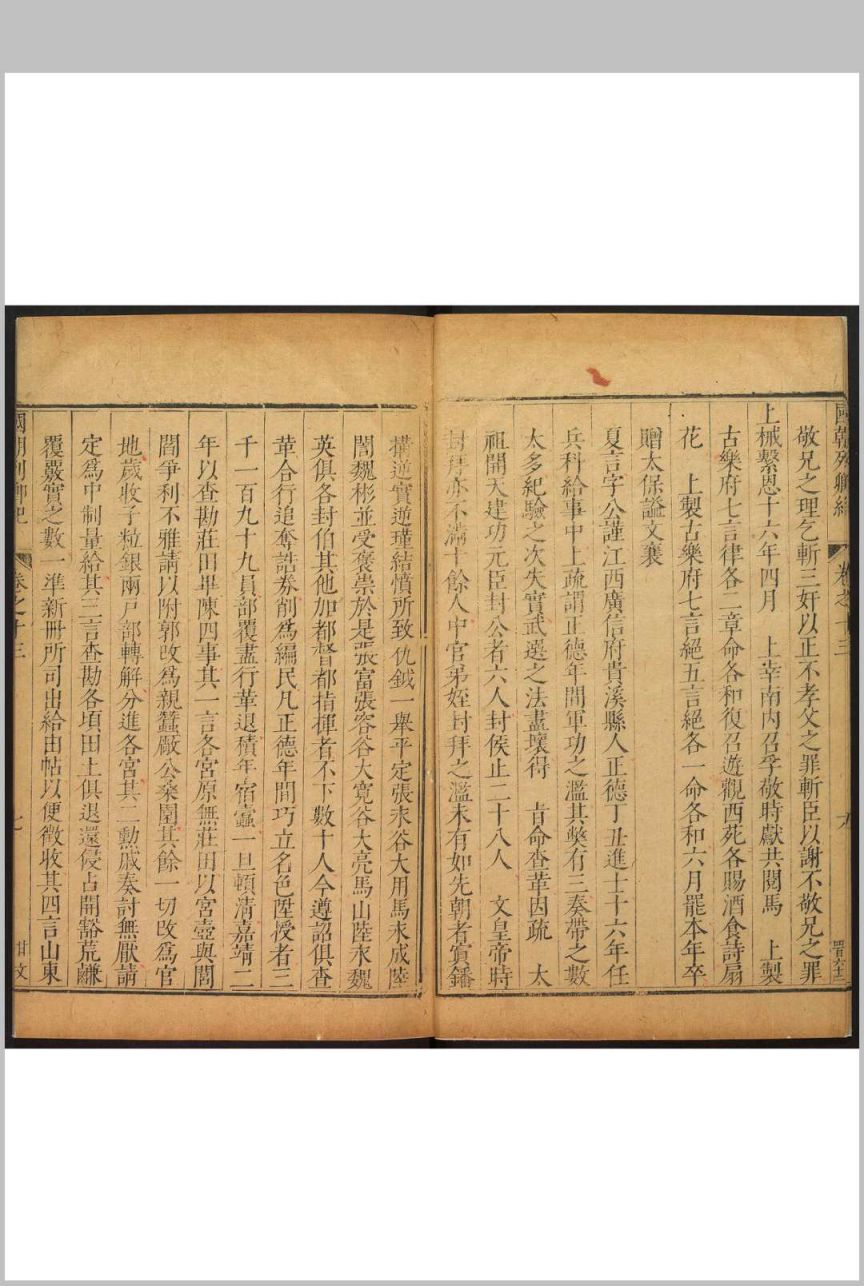 敬兄之理乞斬三奸以正不孝父之罪斬臣以謝不敬兄之罪
上械繫恩十六年四月　上幸南內召孚敬時獻共閱馬　上製
古樂府七言律各二章命各和復召遊觀西苑各賜酒食詩扇
花　上製古樂府七言絕五言絕各一命各和六月罷本年卒
贈太保謚文襄
夏言字公謹江西廣信府貴溪縣人正德丁丑進士十六年任
兵科給事中上疏謂正德年間軍功之濫其獘有三奏帶之數
太多紀驗之次失實武選之法盡壞得　旨命查革因疏　太
祖開天建功元臣封公者六人封侯止二十八人　文皇帝時
封拜亦不滿十餘人中官弟姪封拜之濫未有如先朝者寘鐇
搆逆實逆瑾結憤所致仇鉞一舉平定張永谷大用馬永成陸
誾魏彬並受褒崇於是張富張容谷大寬谷大亮馬山陸永魏
英俱各封伯其他加都督都指揮者不下數十人今遵詔俱查
革合行追奪誥券削爲編民凡正德年間巧立名色陞授者三
千一百九十九員部覆盡行革退積年宿蠹一旦頓清嘉靖二
年以查勘莊田畢陳四事其一言各宮原無莊田以宮壼與閭
閻爭利不雅請以附郭改爲親蠶厰公桑園其餘一切改爲官
地歲收子粒銀兩戶部轉解分進各宮其二勳戚奏討無厭請
定爲中制量給其三言查勘各項田土俱退還侵占開豁荒鹻
覆覈實之數一準新冊所司出給由帖以便徵收其四言山東
國朝列卿紀　卷之十三　七　廿文